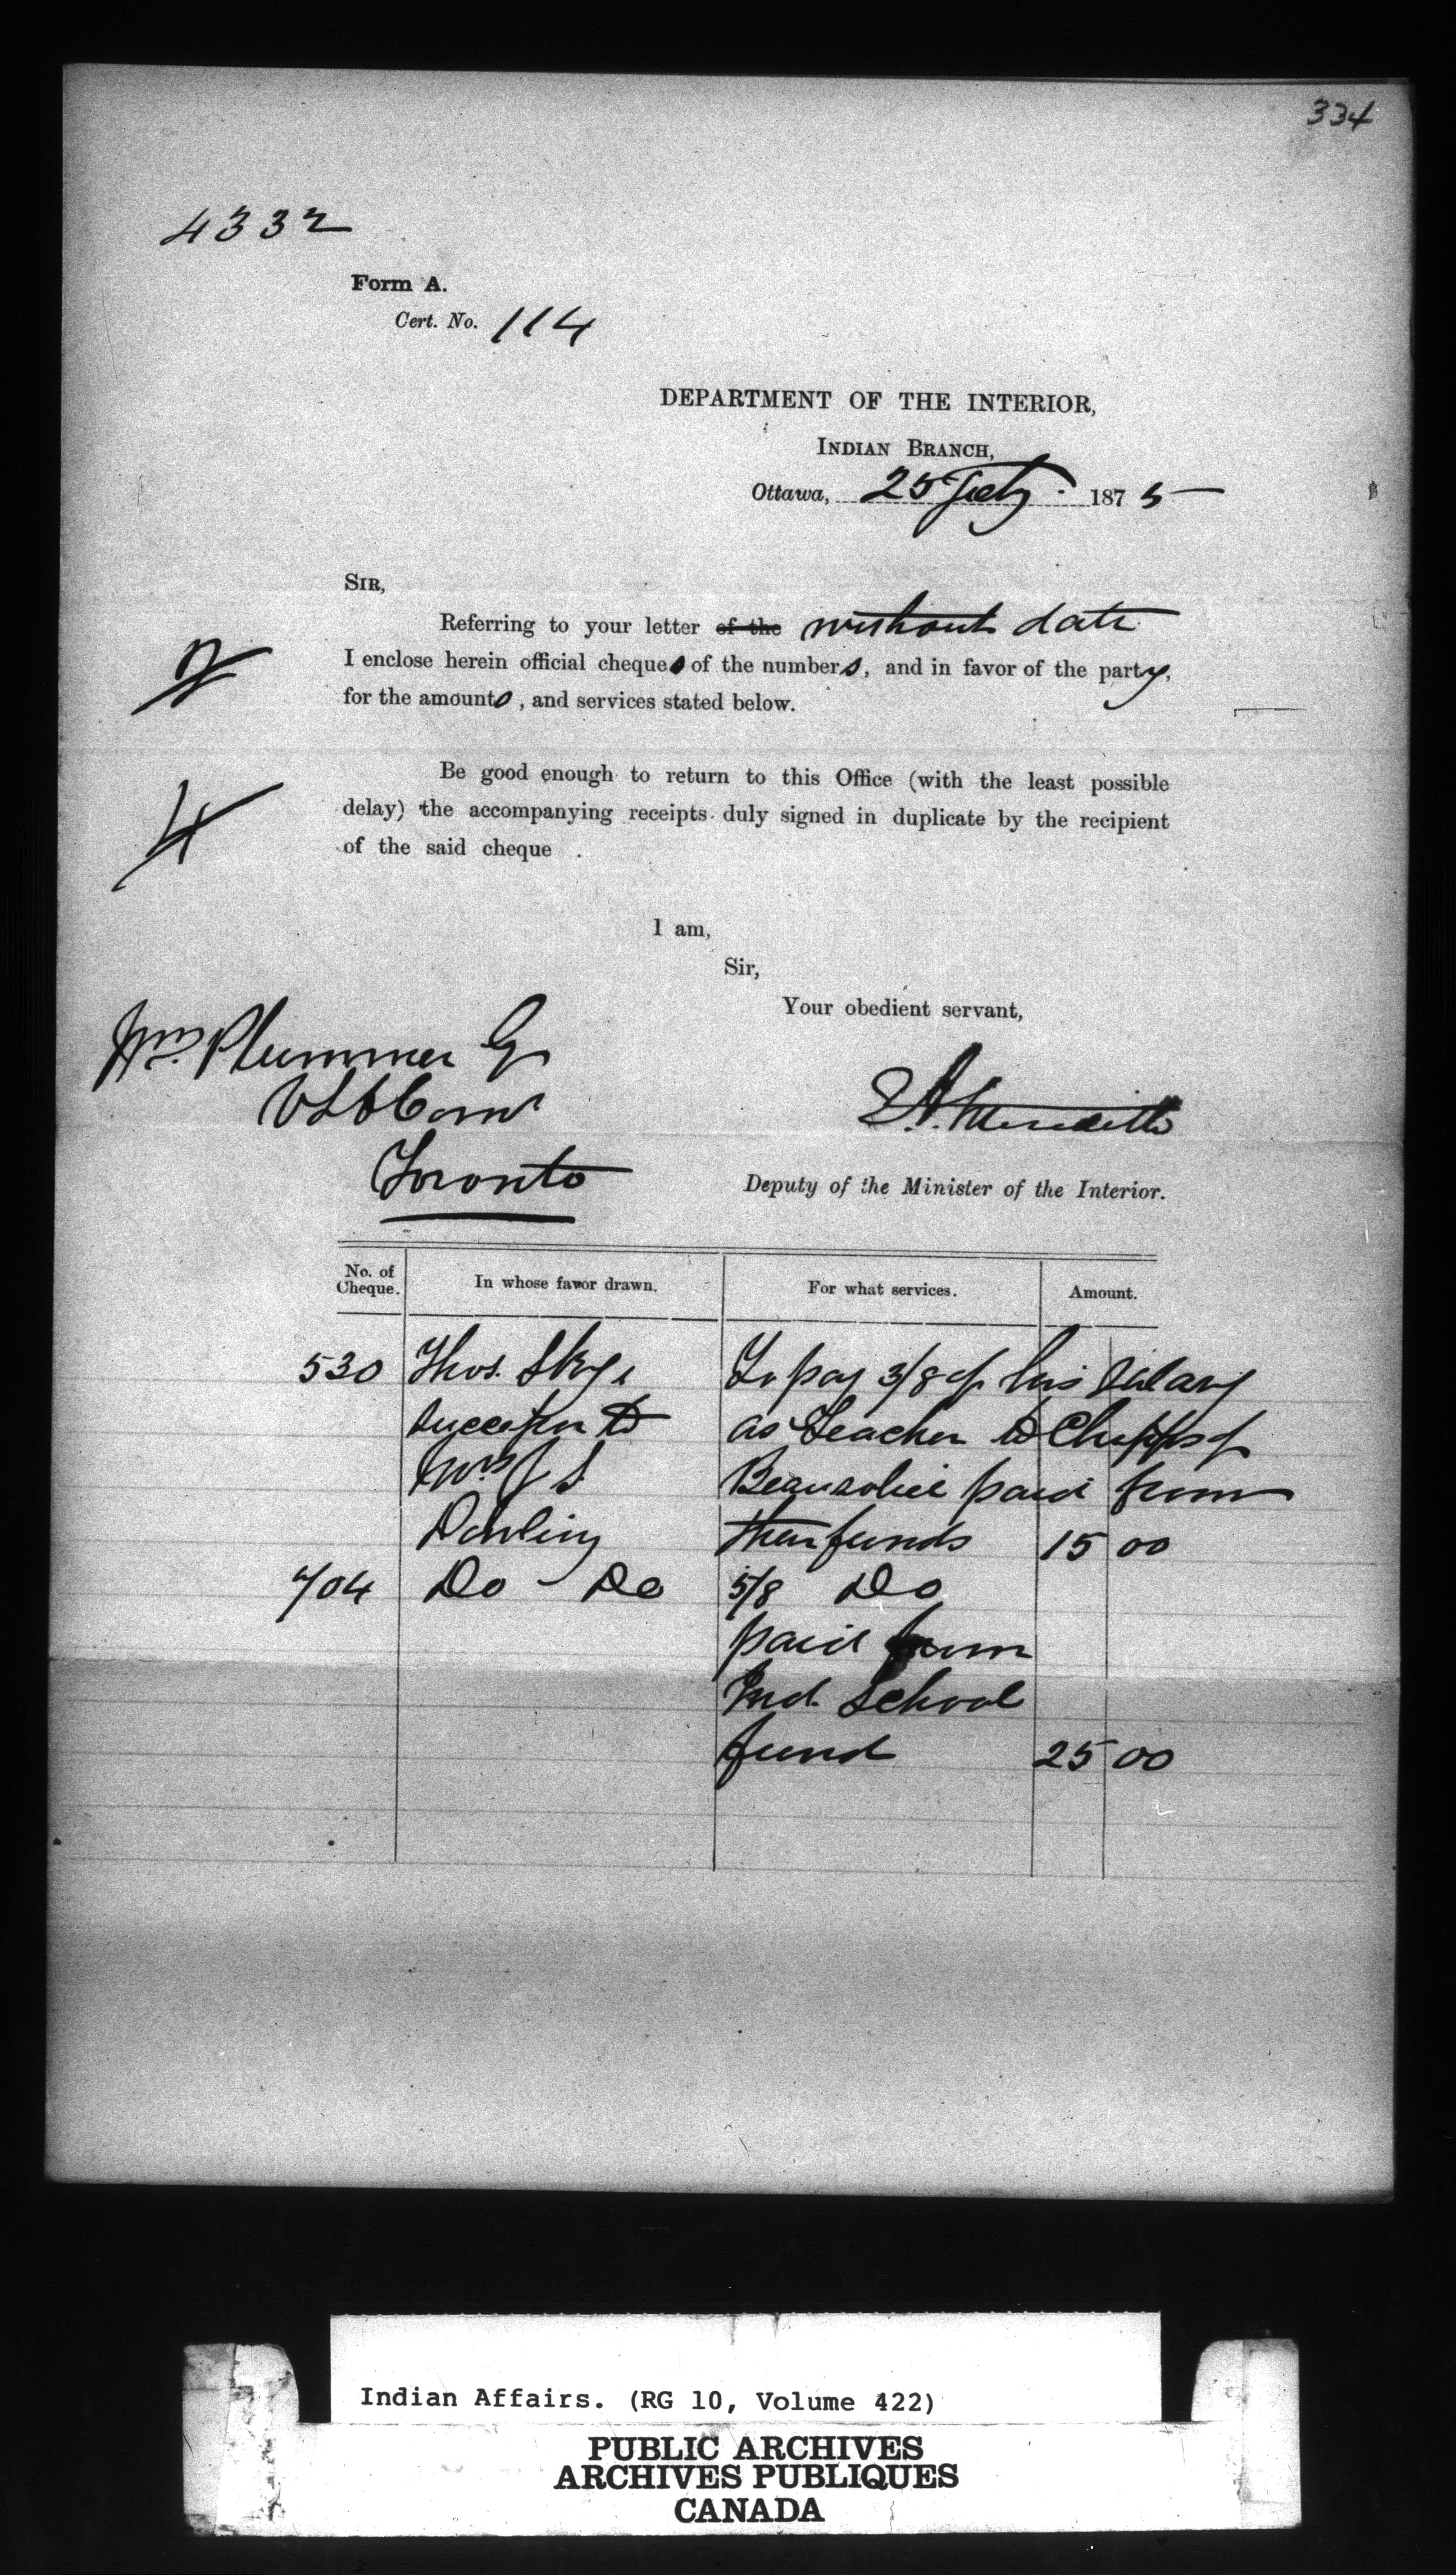 334
4332
Form A.
Cert. No. 114
DEPARTMENT OF THE INTERIOR,
INDIAN BRANCH,
Ottawa, 25 July 1875
SIR,
Referring to your letter of the without date
I enclose herein official cheques of the numbers, and in favor of the party,
for the amounts, and services stated below.
Be good enough to return to this Office (with the least possible
delay) the accompanying receipts duly signed in duplicate by the recipient
of the said cheque .
4
I am,
Sir,
Your obedient servant,
Wm. Plummer
Toronto
E.A. Meredith
Deputy of the Minister of the Interior.
No. of Cheque. In whose favor drawn. For what services. Amount.
530 Thos. To pay 3/8 of his Salary
successor to as Teacher to Chipps of
Mrs Beausoleil paid from
their funds 15 00
704 Do - Do 5/8 Do
paid from
Ind. School
fund 25 00
Indian Affairs. (RG 10, Volume 422)
PUBLIC ARCHIVES
ARCHIVES PUBLIQUES
CANADA